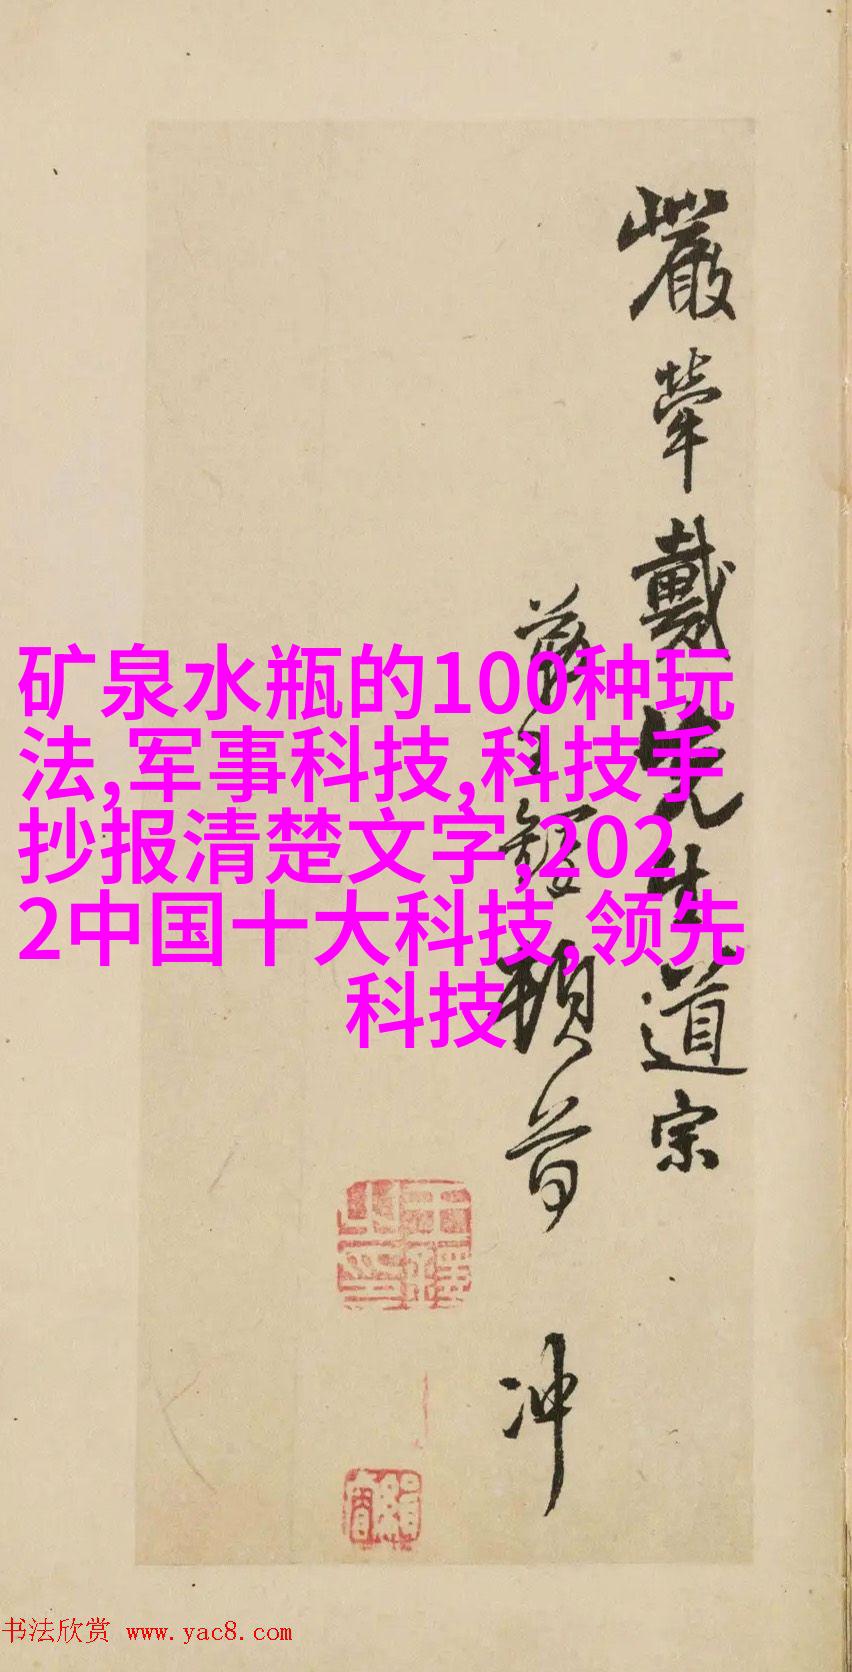 矿泉水瓶的100种玩
法,军事科技,科技手
抄报清楚文字,202
2中国十大科技,领先
科技
嚴犖戴先生道宗
頓首
冲
书法欣赏 www.yac8.com